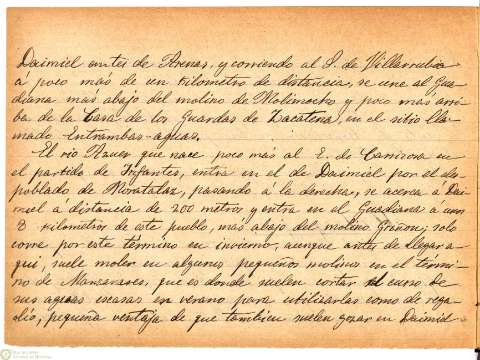 Daimiel antes de Arenas, y corriendo al S. de Villarrubia
á poco más de un kilometro de distancia, se une al Gua-
diana más abajo del molino de Molemocho y poco mas arri-
ba de la Casa de los Guardas de Zacatena, en el sitio lla-
mado Entrambas-aguas.
El rio Azuer que nace poco más al E. de Carrizosa en
el partido de Infantes, entra en el de Daimiel por el des-
poblado de Moratalaz, pasando á la derecha, se acerca á Dai-
miel á distancia de 200 metros y entra en el Guadiana á unos
8 kilometros de este pueblo, más abajo del molino Griñon; solo
corre por este término en invierno, aunque antes de llegar a-
qui, suele moler en algunos pequeños molinos en el térmi-
no de Manzanares, que es donde suelen cortar el curso de
sus aguas escasas en verano para utilizarlas como de rega-
dío, pequeña ventaja de que tambien suelen gozar en Daimiel